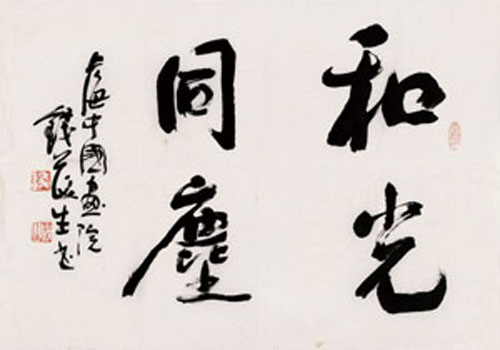 和光
同塵
上海中國畫院
錢茂生書